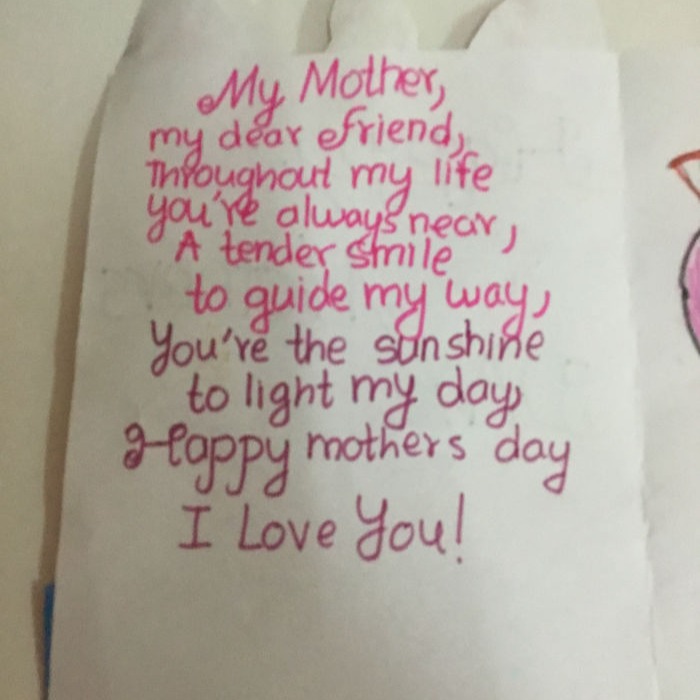 My Mother,
my dear friend,
Throughout my life
you're always near,
A tender smile
to guide my way,
You're the sunshine
to light my day,
Happy mothers day
I Love You!